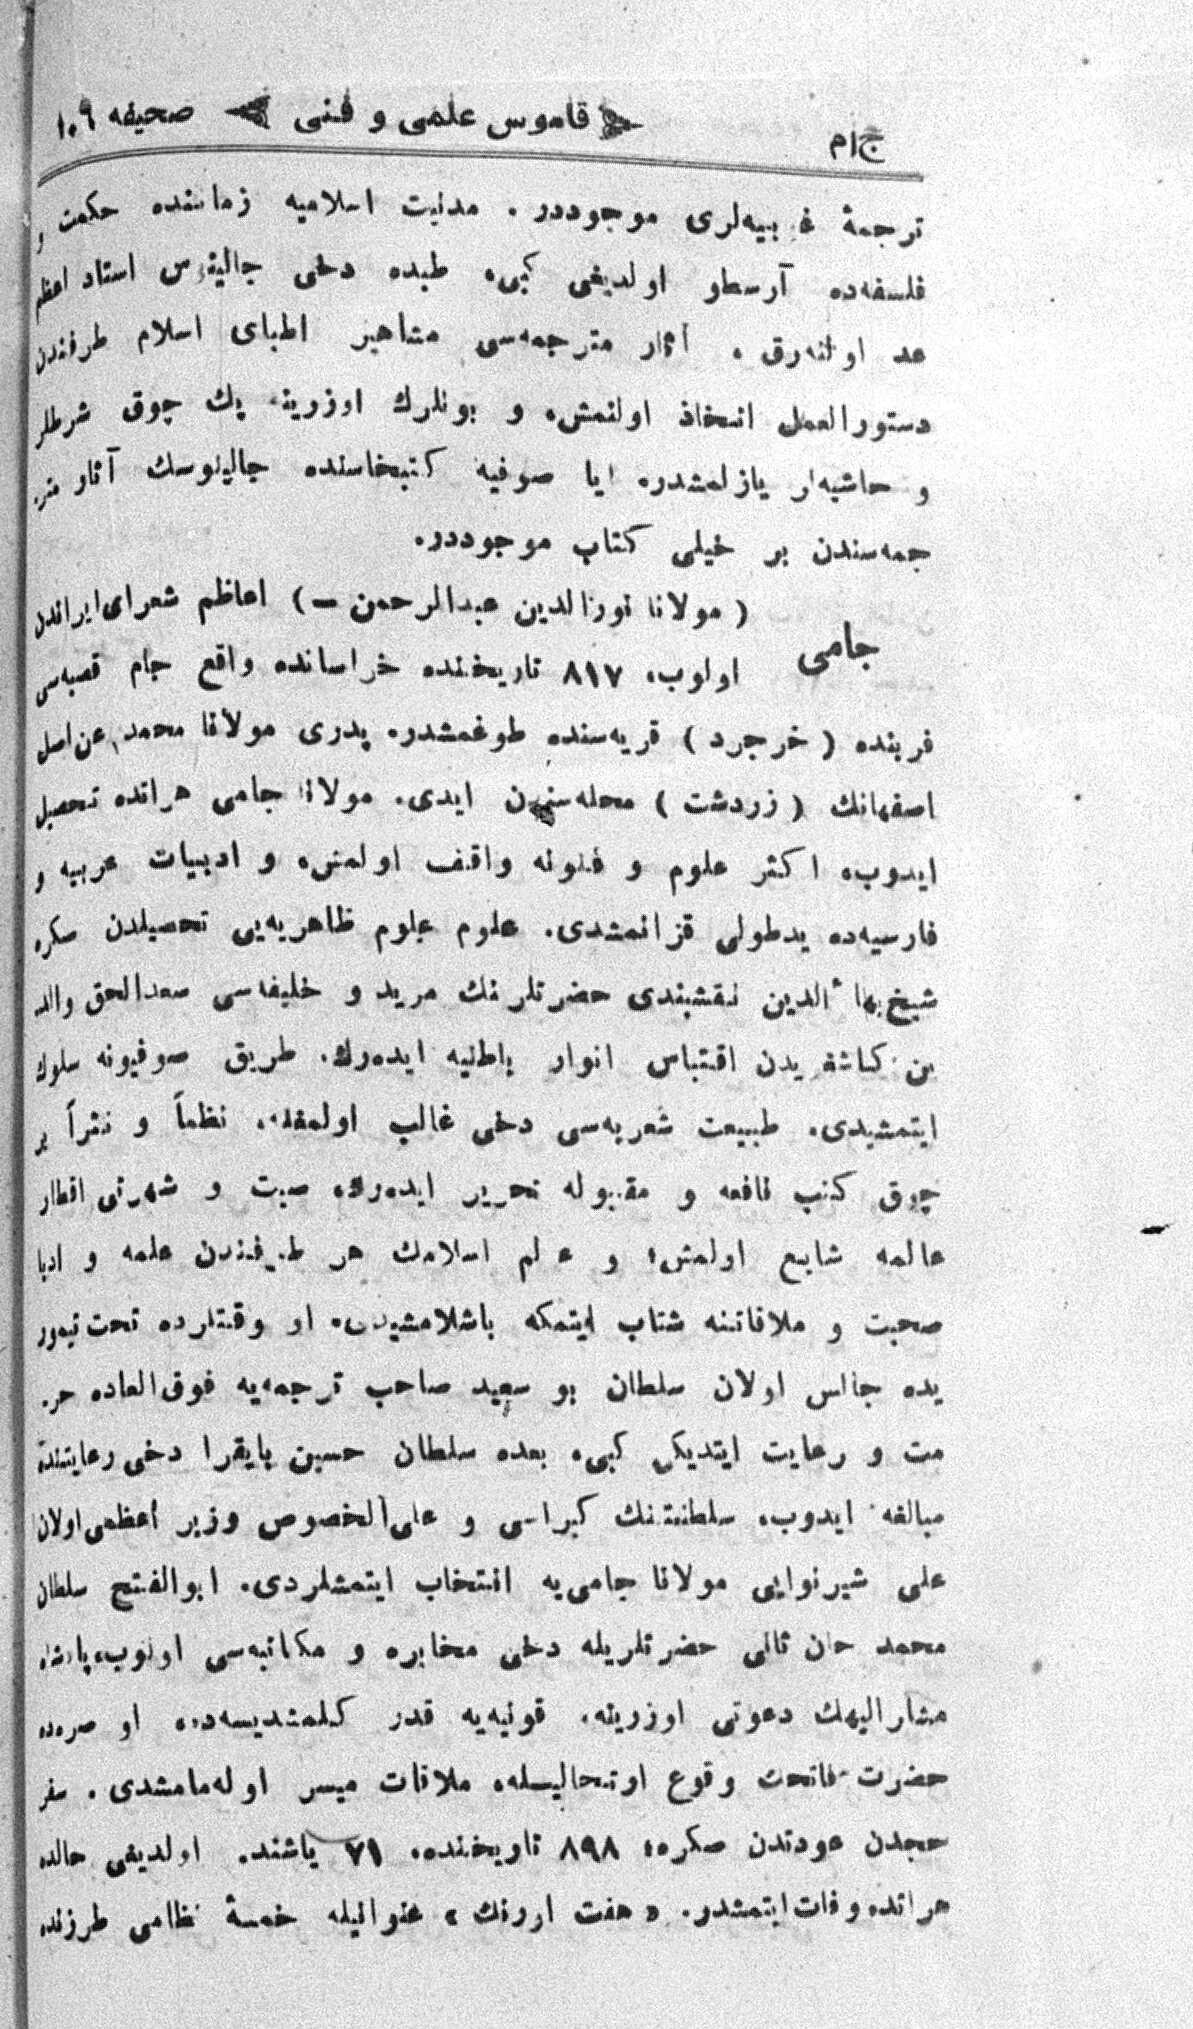 ج ا م ﴿ قاموس علمی و فنی ﴾ صحیفه ۱۰۹
ترجمۀ غربیه‌لری موجوددر. مدنیت اسلامیه زماننده حکمت و
فلسفه‌ده آرسطو اولدیغی کبی، طبده دخی جالینوس استاد اعظم
عد اولنه‌رق، آثار مترجمه‌سی مشاهیر اطبای اسلام طرفندن
دستورالعمل اتخاذ اولنمش، و بونلرك اوزرینه پك چوق شرطلر
و حاشیه‌لر یازلمشدر. ایا صوفیه کتبخانه‌سنده جالینوسك آثار متر
جمه‌سندن بر خیلی کتاب موجوددر.
جامی ( مولانا نورالدین عبدالرحمن ــ ) اعاظم شعرای ایراندن
اولوب، ۸۱۷ تاریخنده خراسانده واقع جام قصبه‌سی
قربنده ( خرجرد ) قریه‌سنده طوغمشدر. پدری مولانا محمد، عن اصل
اصفهانك ( زردشت ) محله‌سندن ایدی. مولانا جامی هراتده تحصیل
ایدوب، اکثر علوم و فنونه واقف اولمش، و ادبیات عربیه و
فارسیه‌ده یدطولی قزانمشدی. علوم علوم ظاهریه‌یی تحصیلدن صکره
شیخ بهاء الدین نقشبندی حضرتلرینك مرید و خلیفه‌سی سعدالحق والد
ین کاشغریدن اقتباس انوار باطنیه ایده‌رك، طریق صوفیونه سلوك
ایتمشیدی. طبیعت شعریه‌سی دخی غالب اولمغله، نظماً و نثراً بر
چوق کتب نافعه و مقبوله تحریر ایده‌رك، صیت و شهرتی اقطار
عالمه شایع اولمش، و عالم اسلامك هر طرفندن علمه و ادبا
صحبت و ملاقاتنه شتاب ایتمکه باشلامشیدی. او وقتلرده تخت تیمور
یده جالس اولان سلطان بو سعید صاحب ترجمه‌یه فوق‌العاده حر
مت و رعایت ایتدیکی کبی، بعده سلطان حسین بایقرا دخی رعایتنده
مبالغه ایدوب، سلطنتنك کبراسی و علی‌الخصوص وزیر اعظمی اولان
علی شیرنوایی مولانا جامی‌یه انتخاب ایتمشلردی. ابوالفتح سلطان
محمد خان ثانی حضرتلریله دخی مخابره و مکاتبه‌سی اولوب، پادشاه
مشارالیهك دعوتی اوزرینه، قونیه‌یه قدر کلمشدیسه‌ده، او صره‌ده
حضرت فاتحك وقوع ارتحالیله، ملاقات میسر اوله‌مامشدی. سفر
حجدن عودتدن صکره، ۸۹۸ تاریخنده، ۷۱ یاشنده اولدیغی حالده
هراتده وفات ایتمشدر. « هفت اورنك » عنوانیله خمسۀ نظامی طرزنده